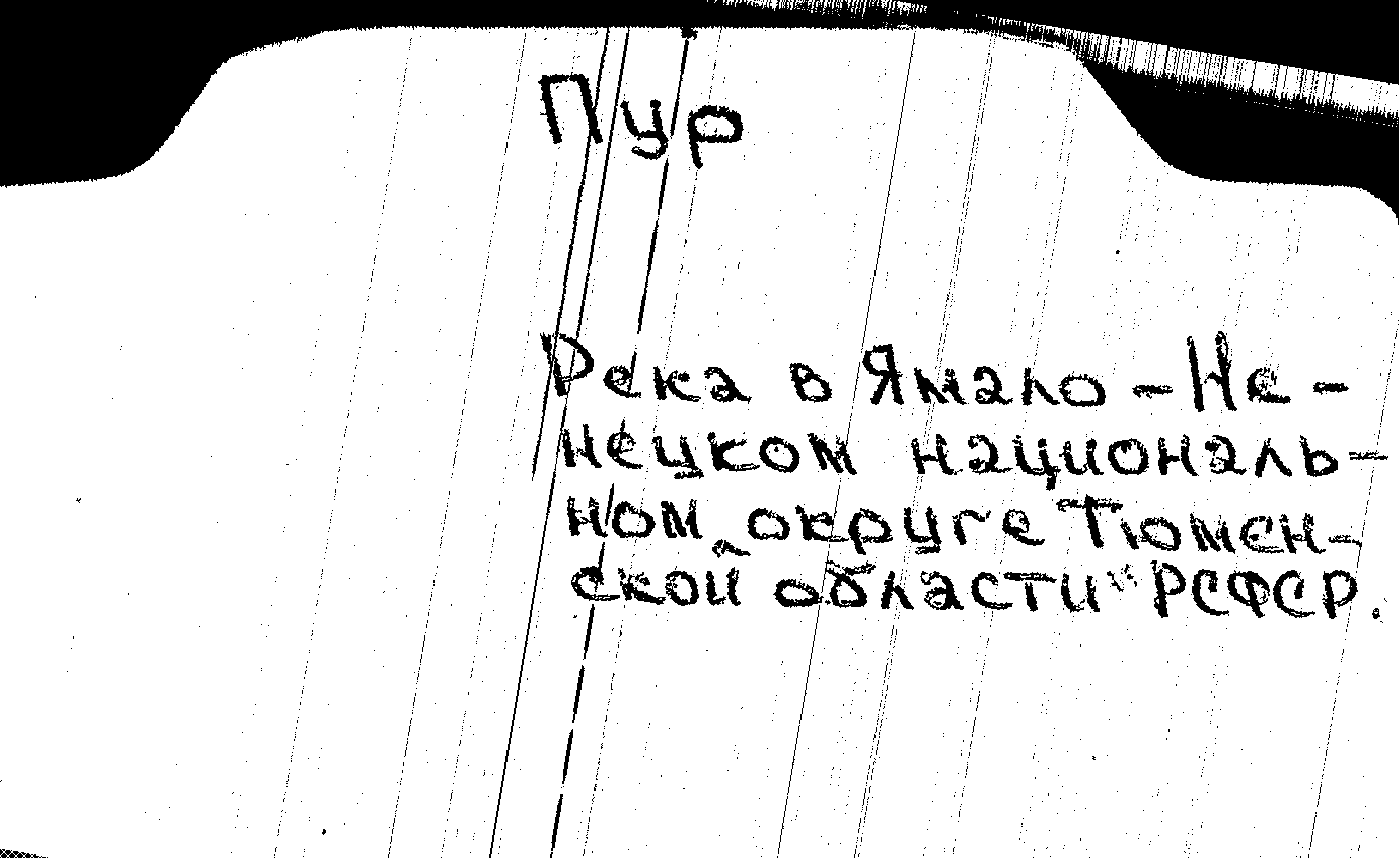 Пур
Река в Ямало-Не-
нецком националь-
ном округе Тюмен-
ской области РСФСР.